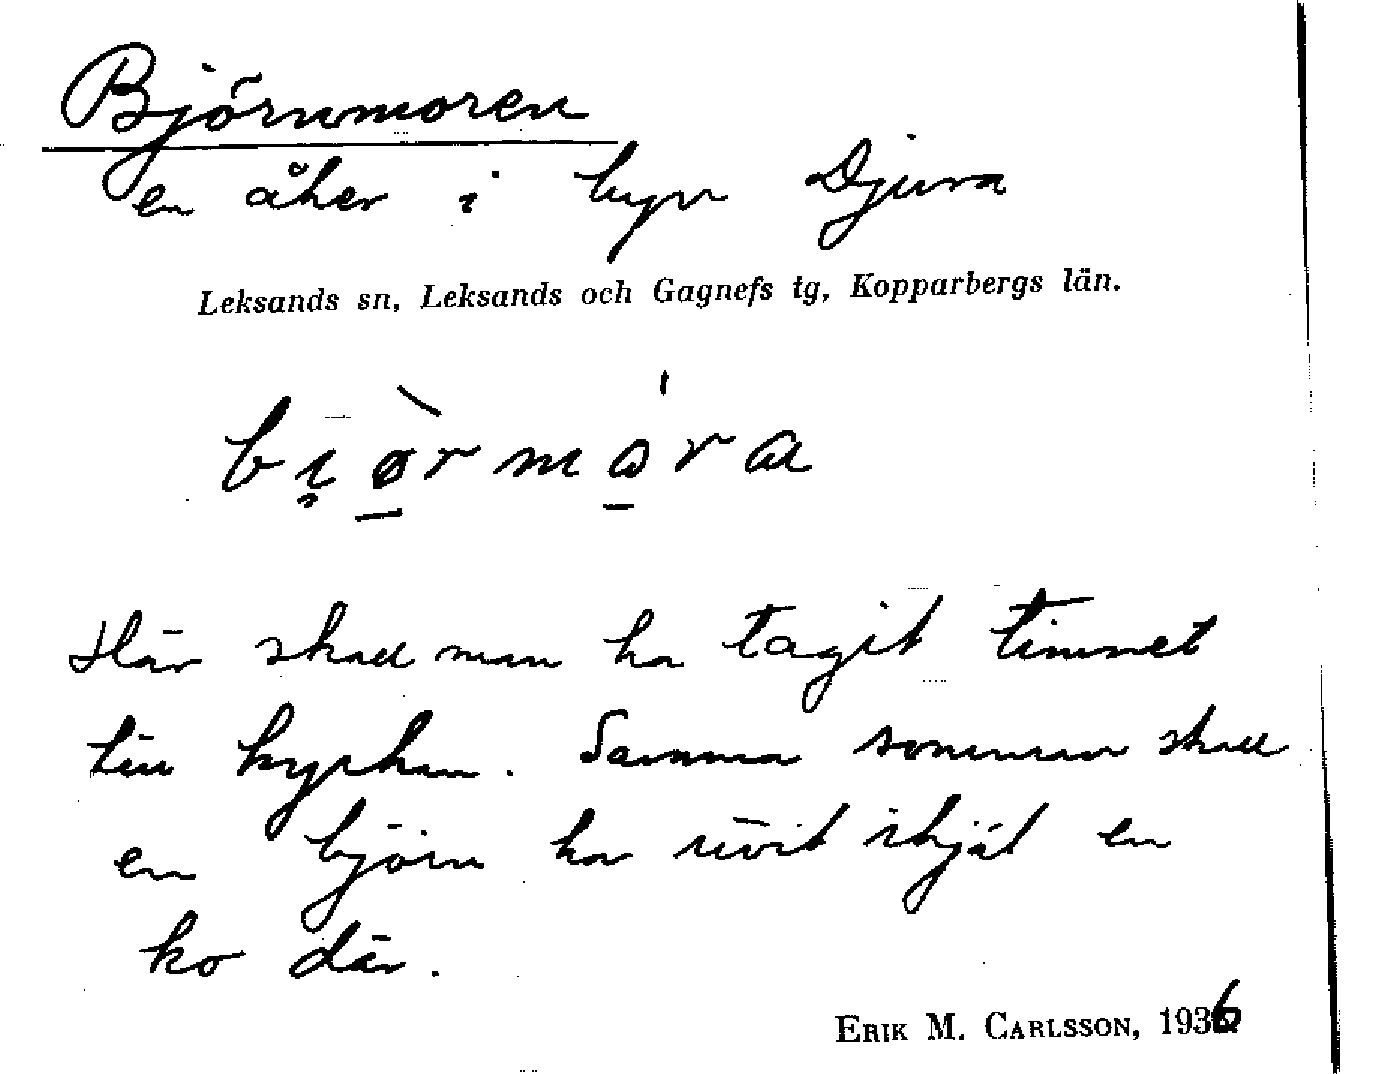 Björnmoren
en åker i byn Djura
Leksands sn, Leksands och Gagnefs tg, Kopparbergs län.
Här skall man ha tagit timret
till kyrkan. Samma sommar skall
en björn ha rivit ihjäl en
ko där.
ERIK M. CARLSSON, 1936